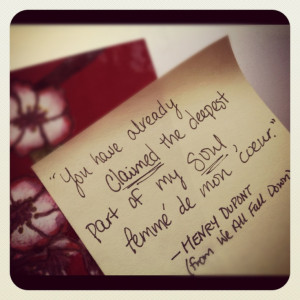 "You have already
claimed the deepest
part of my Soul,
femmé de mon coeur."
— HENRY DUPONT
(from We All Fall Down)